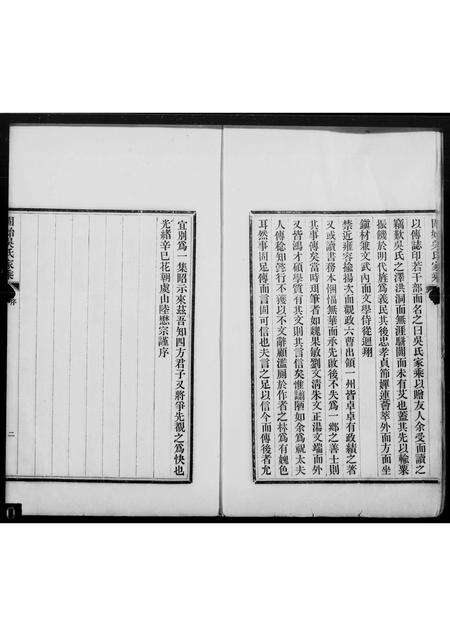 以傳誌印若干部而名之曰吳氏家乘以貽友人余受而讀之
竊歎吳氏之澤洪洞而無涯駢闐而未有艾也蓋其先以輸粟
振饑於明代旌為義民其後忠孝貞節蟬連薈萃外而方面坐
鎮材兼文武內而文學侍從迴翔
禁近雍容揄揚次而觀政六曹出領一州皆卓卓有政績之著
又或讀書務本悃愊無華而承先啟後不失為一鄉之善士則
其事傳矣當時珥筆者如魏果敏劉文清朱文正湯文端而外
又皆鴻才碩學質有其文則其言信矣惟譾陋如余為祝太夫
人傳徐知誥行不獲以不文辭顧濫廁於作者之林為有媿色
耳然事固足傳而言固可信也夫言之足以信今而傳後者尤
宜別為一集昭示來茲吾知四方君子又將爭先觀之為快也
光緒辛巳花朝虞山陸懋宗謹序
吳氏家乘
序
二